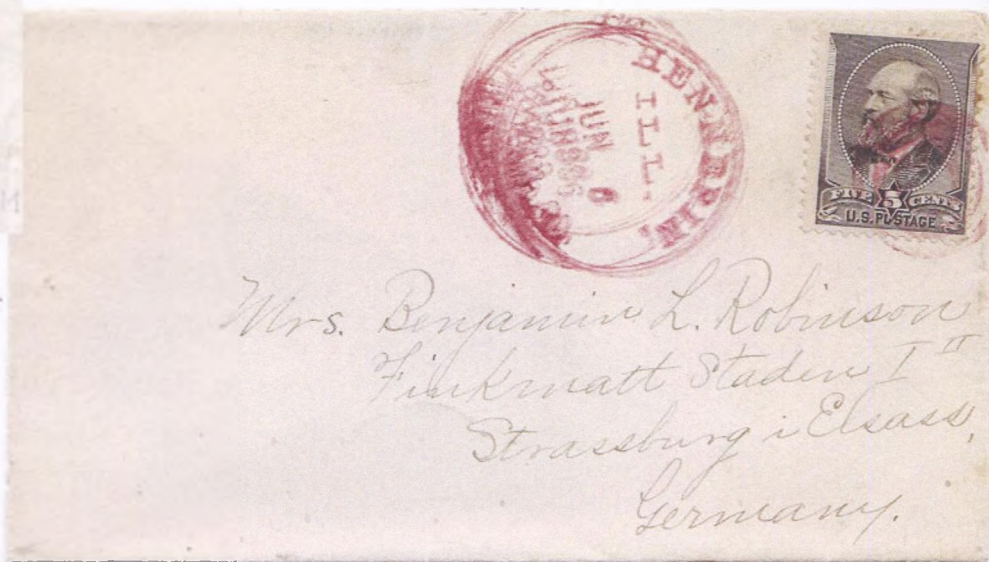 HENNEPIN,
ILL.
JUN
6
FIVE 5 CENTS
U.S. POSTAGE
Mrs. Benjamin L. Robinson
Finkmatt Staden I II
Strassburg i Elsass,
Germany.